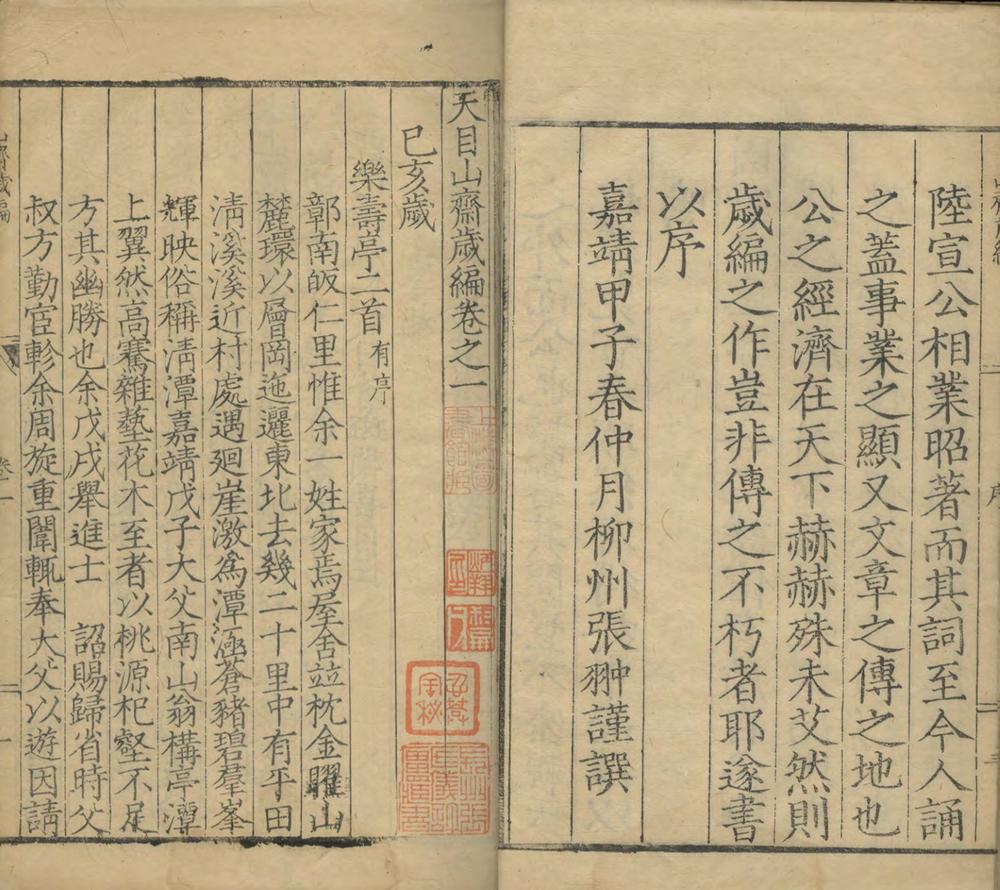 陸宣公相業昭著而其詞至今人誦
之蓋事業之顯又文章之傳之地也
公之經濟在天下赫赫殊未艾然則
歲編之作豈非傳之不朽者耶遂書
以序
嘉靖甲子春仲月柳州張翀謹譔
序
天目山齋歲編卷之一
己亥歲
樂壽亭二首有序
鄣南皈仁里惟余一姓家焉屋舍竝枕金矅山
麓環以層岡迤邐東北去幾二十里中有平田
清溪溪近村處遇廻崖激為潭涵蒼豬碧羣峯
輝映俗稱清潭嘉靖戊子大父南山翁構亭潭
上翼然高騫雜藝花木至者以桃源杞壑不足
方其幽勝也余戊戌舉進士 詔賜歸省時父
叔方勤宦軫余周旋重闈輒奉大父以遊因請
歲編
卷一